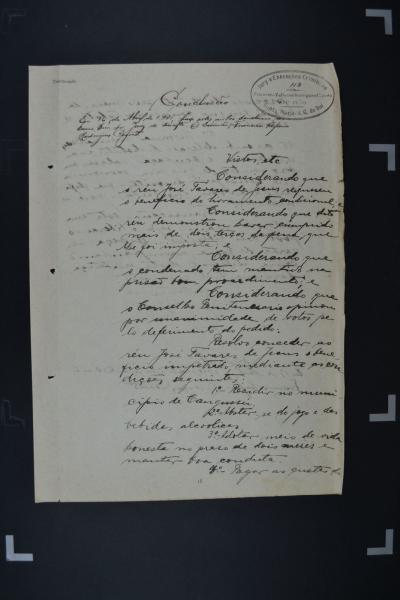 Conclusão
Vistos, etc
Considerando que
o réu José Tavares de Jesus requereu
o beneficio de livramento condicional; e
Considerando que dito
réu demonstrou haver cumprido
mais de dois terços da pena que
lhe foi imposta; e
Considerando que
o condenado tem mantido na
prisão bom procedimento; e
Considerando que
o Conselho Penitenciario opinou
por unanimidade de votos pe-
lo deferimento do pedido:
Resolvo conceder ao
réu José Tavares de Jesus o bene-
ficio impetrado, mediante as con-
dições seguintes:
1º Residir no muni-
cipio de Cangussú
2º Abster-se de jogo e das
bebidas alcoolicas
3º Adotar meio de vida
honesta no praso de dois meses e
manter boa conduta
4º- Pagar as custas do